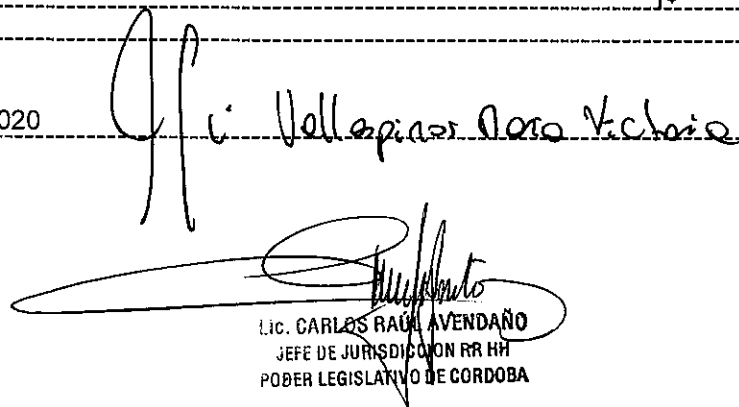 020 Vallespinos Mara Victoria
Lic. CARLOS RAÚL AVENDAÑO
JEFE DE JURISDICCION RR HH
PODER LEGISLATIVO DE CORDOBA